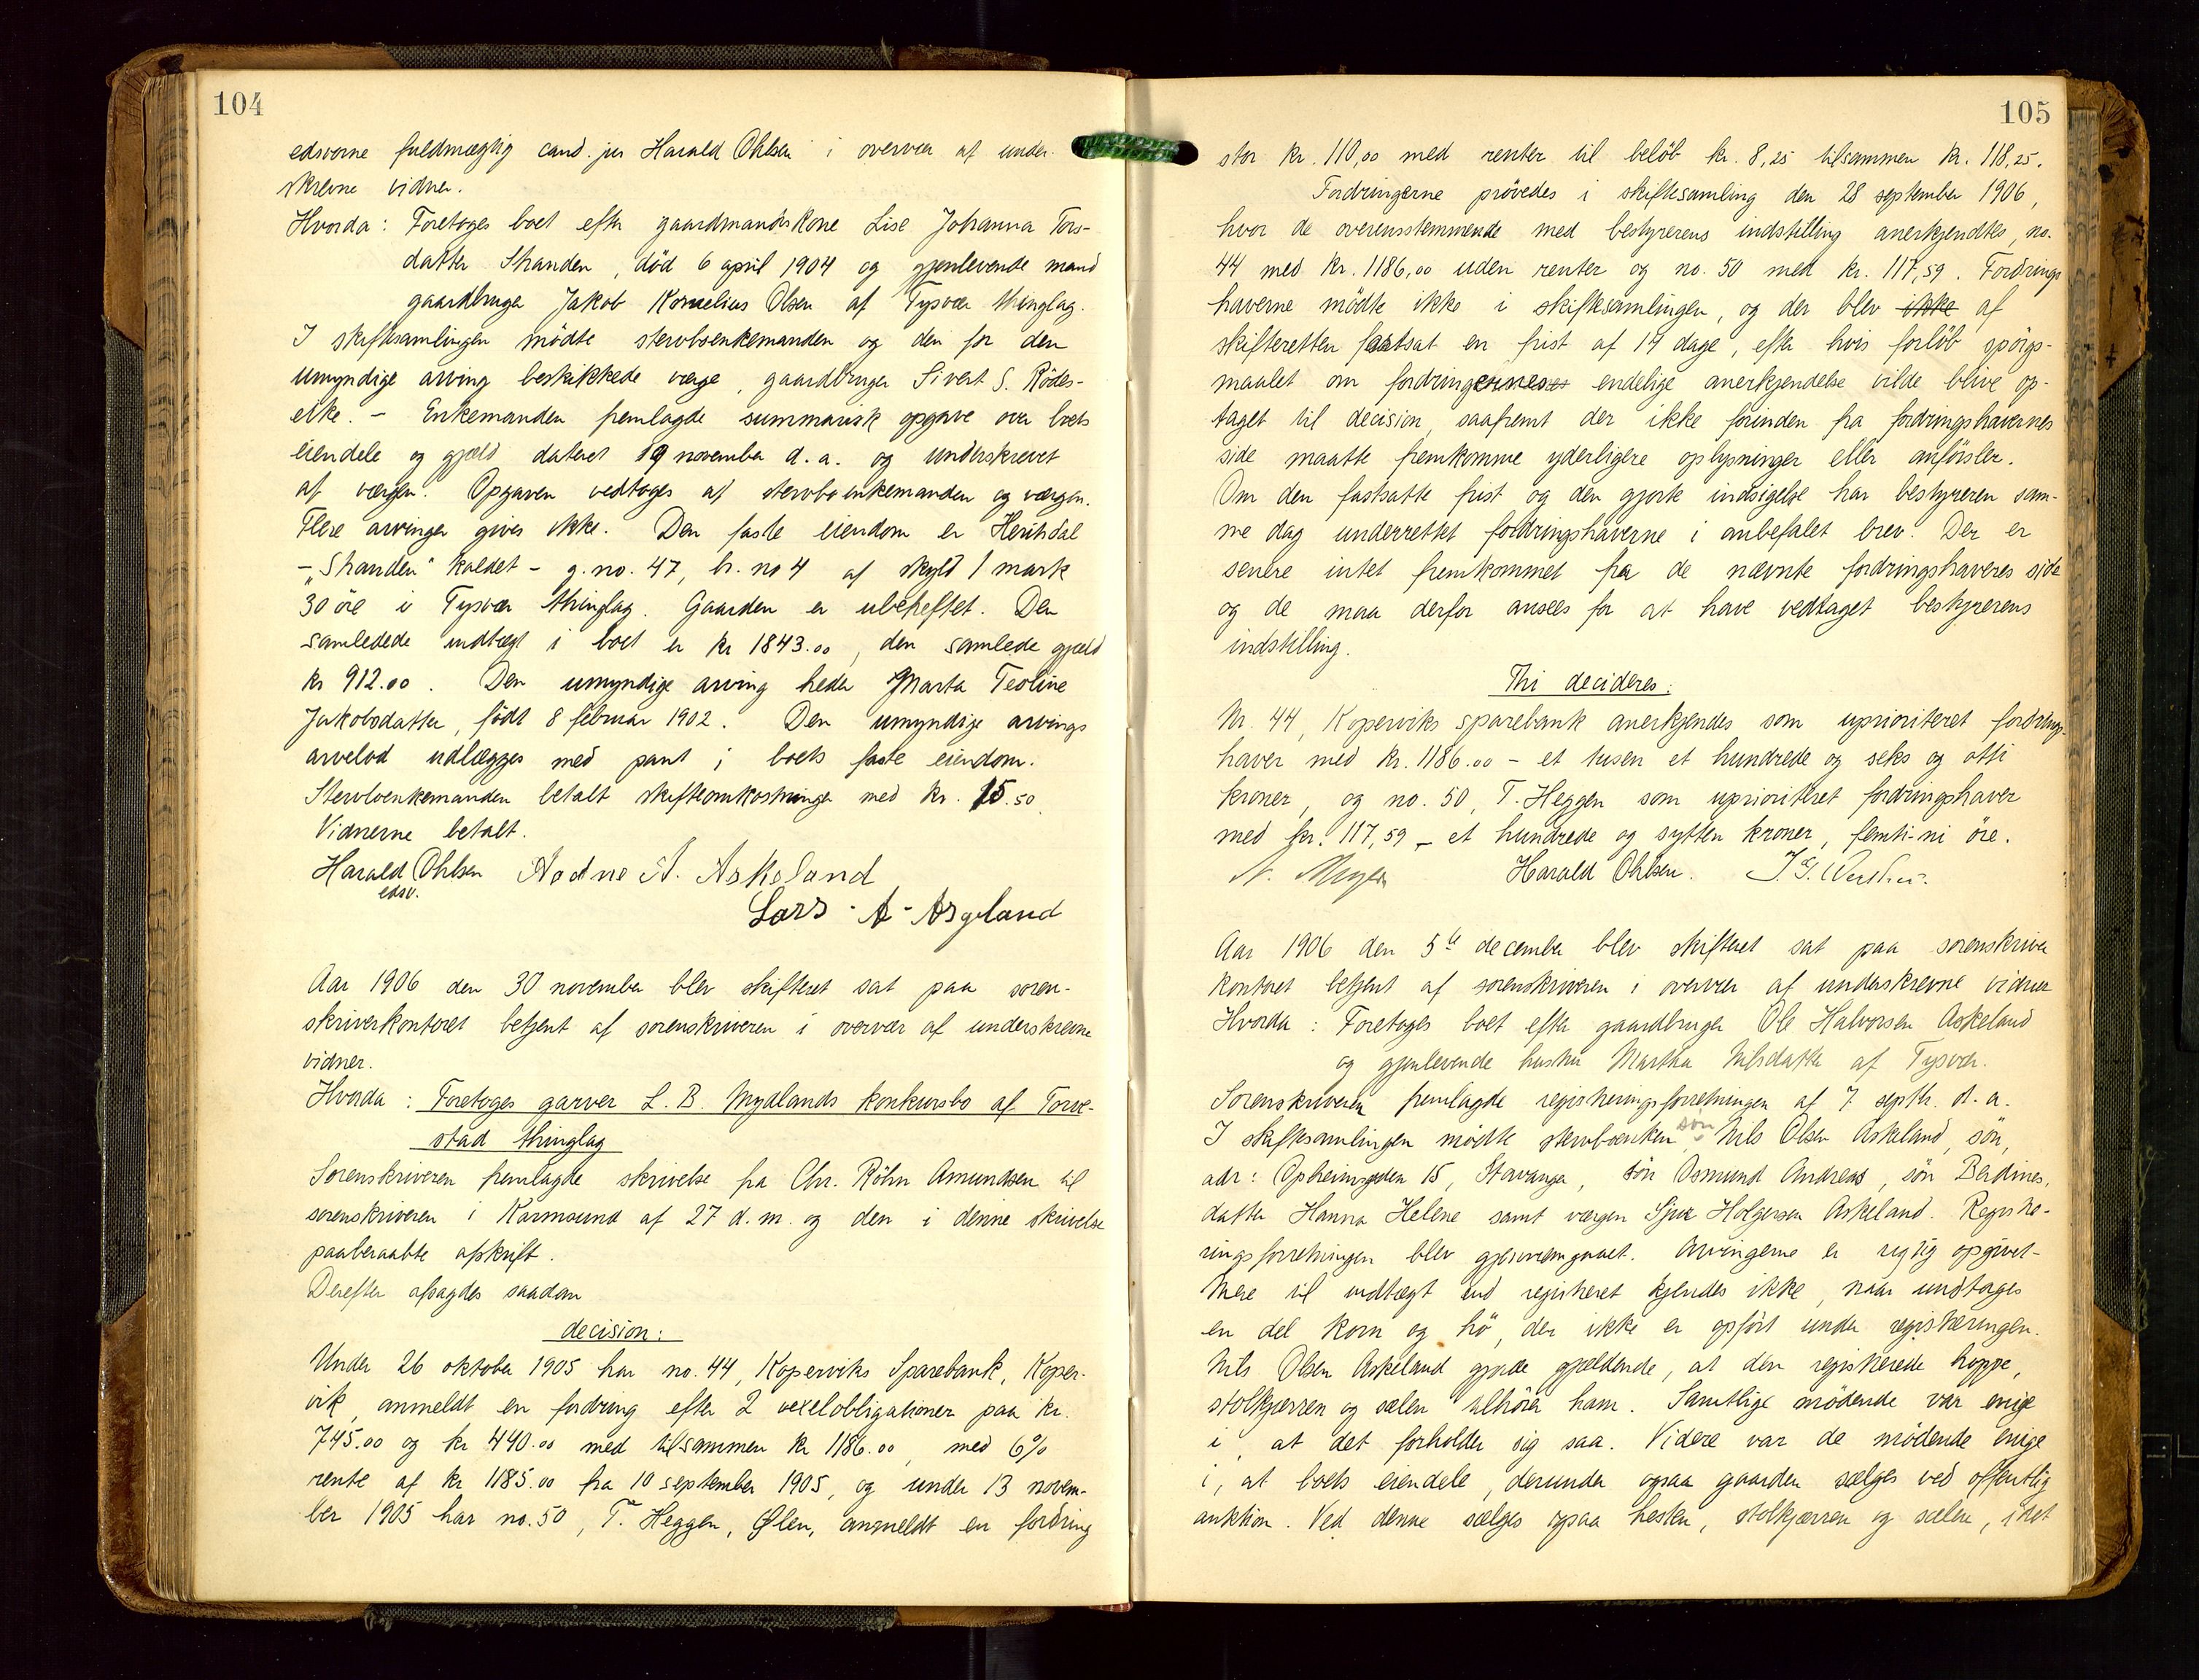 104
edsvorne fuldmægtig cand. jur Harald Ohlsen i overvær af under-
skrevne vidner.
Hvorda: Foretoges boet efter gaardmandskone Lise Johanna Tors-
datter Stranden, död 6 april 1904 og gjenlevende mand
gaardbruger Jakob Kornelius Olsen af Tysvær thinglag.
I skiftesamlingen mödte stervboenkemanden og den for den
umyndige arving beskikkede værge, gaardbruger Sivert S. Rödes-
eike. - Enkemanden fremlagde summarisk opgave over boets
eiendele og gjeld dateret 19 november d. a. og underskrevet
af værgen. Opgaven vedtoges af stervboenkemanden og værgen.
Flere arvinger gives ikke. Den faste eiendom er
- "Stranden" kaldet - g. no. 47, br. no 4 af skyld 1 mark
30 öre i Tysvær thinglag. Gaarden er ubeheftet. Den
samledede indtægt i boet er kr 1843.00, den samlede gjæld
kr 912.00. Den umyndige arving heder Marta Teoline
Jakobsdatter, födt 8 februar 1902. Den umyndige arvings
arvelod udlægges med pant i boets faste eiendom.
Stervboenkemanden betalt skifteomkostninger med kr. 15.50.
Vidnerne betalt.
Harald Ohlsen Aadne A. Askeland
edsv.
Lars - A - Asgeland
Aar 1906 den 30 november blev skifteret sat paa soren-
skriverkontoret betjent af sorenskriveren i overvær af underskrevne
vidner.
Hvorda: Foretoges garver L. B. Mydlands konkursbo af Torve-
stad thinglag
Sorenskriveren fremlagde skrivelse fra Chr. Röhn Amundsen til
sorenskriveren i Karmsund af 27 d. m. og den i denne skrivelse
paaberaabte afskrift.
Derefter afsagdes saadan
decision:
Under 26 oktober 1905 har no. 44, Koperviks Sparebank, Koper-
vik, anmeldt en fordring efter 2 vexelobligationer paa kr.
745.00 og kr 440.00 med tilsammen kr 1186.00, med 6%
rente af kr 1185.00 fra 10 september 1905, og under 13 novem-
ber 1905 har no. 50, T. Heggen, Ølen, anmeldt en fordring
105
stor kr. 110,00 med renter til belöb kr. 8,25 tilsammen kr. 118,25.
Fordringerne prövedes i skiftesamling den 28 september 1906,
hvor de overensstemmende med bestyrerens indstilling anerkjendtes, no.
44 med kr. 1186,00 uden renter og no. 50 med kr. 117,59. Fordrings
haverne mödte ikke i skiftesamlingen, og der blev ikke af
skifteretten fastsat en frist af 14 dage, efter hvis forlöb spörgs-
maalet om fordringernes endelige anerkjendelse vilde blive op-
taget til decision, saafremt der ikke forinden fra fordringshavernes
side maatte fremkomme yderligere oplysninger eller anförsler.
Om den fastsatte frist og den gjorte indsigelse har bestyreren sam-
me dag underrettet fordringshaverne i anbefalet brev. Der er
senere intet fremkommet fra de nævnte fordringshaveres side
og de maa derfor ansees for at have vedtaget bestyrerens
indstilling.
Thi decideres:
Nr. 44, Koperviks sparebank anerkjendes som uprioriteret fordrings-
haver med kr. 1186.00 - et tusen et hundrede og seks og otti
kroner, og no. 50, T. Heggen som uprioriteret fordringshaver
med kr. 117,59 - et hundrede og sytten kroner, femti-ni öre.
Harald Ohlsen.
Aar 1906 den 5te december blev skifteret sat paa sorenskriver
kontoret betjent af sorenskriveren i overvær af underskrevne vidner
Hvorda: Foretoges boet efter gaardbruger Ole Halvorsen Askeland
og gjenlevende hustru Martha Nilsdatter af Tysvær.
Sorenskriveren fremlagde registreringsforretningen af 7 septbr. d. a.
I skiftesamlingen mödte stervboenken, sön Nils Olsen Askeland, sön,
adr: Opheimsgaden 15, Stavanger, sön Osmund Andreas, sön Berdines,
datter Hanna Helene samt værgen Sjur Holgersen Askeland. Registre-
ringsforretningen blev gjennemgaaet. Arvingerne er rigtig opgivet-
Mere til indtægt end registreret kjendes ikke, naar undtages
en del korn og hö, der ikke er opfört under registreringen.
Nils Olsen Askeland gjorde gjældende, at den registrerede hoppe,
stolkjærren og sælen tilhörer ham. Samtlige mödende var enige
i at det forholder sig saa. Videre var de mödende enige
i, at boets eiendele, derunder ogsaa gaarden sælges ved offentlig
auktion. Ved denne sælges ogsaa hesten, stolkjærren og sælen, idet